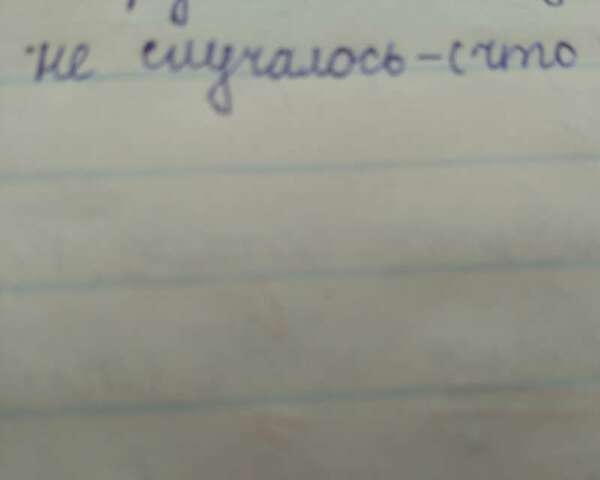 не случалось – (что